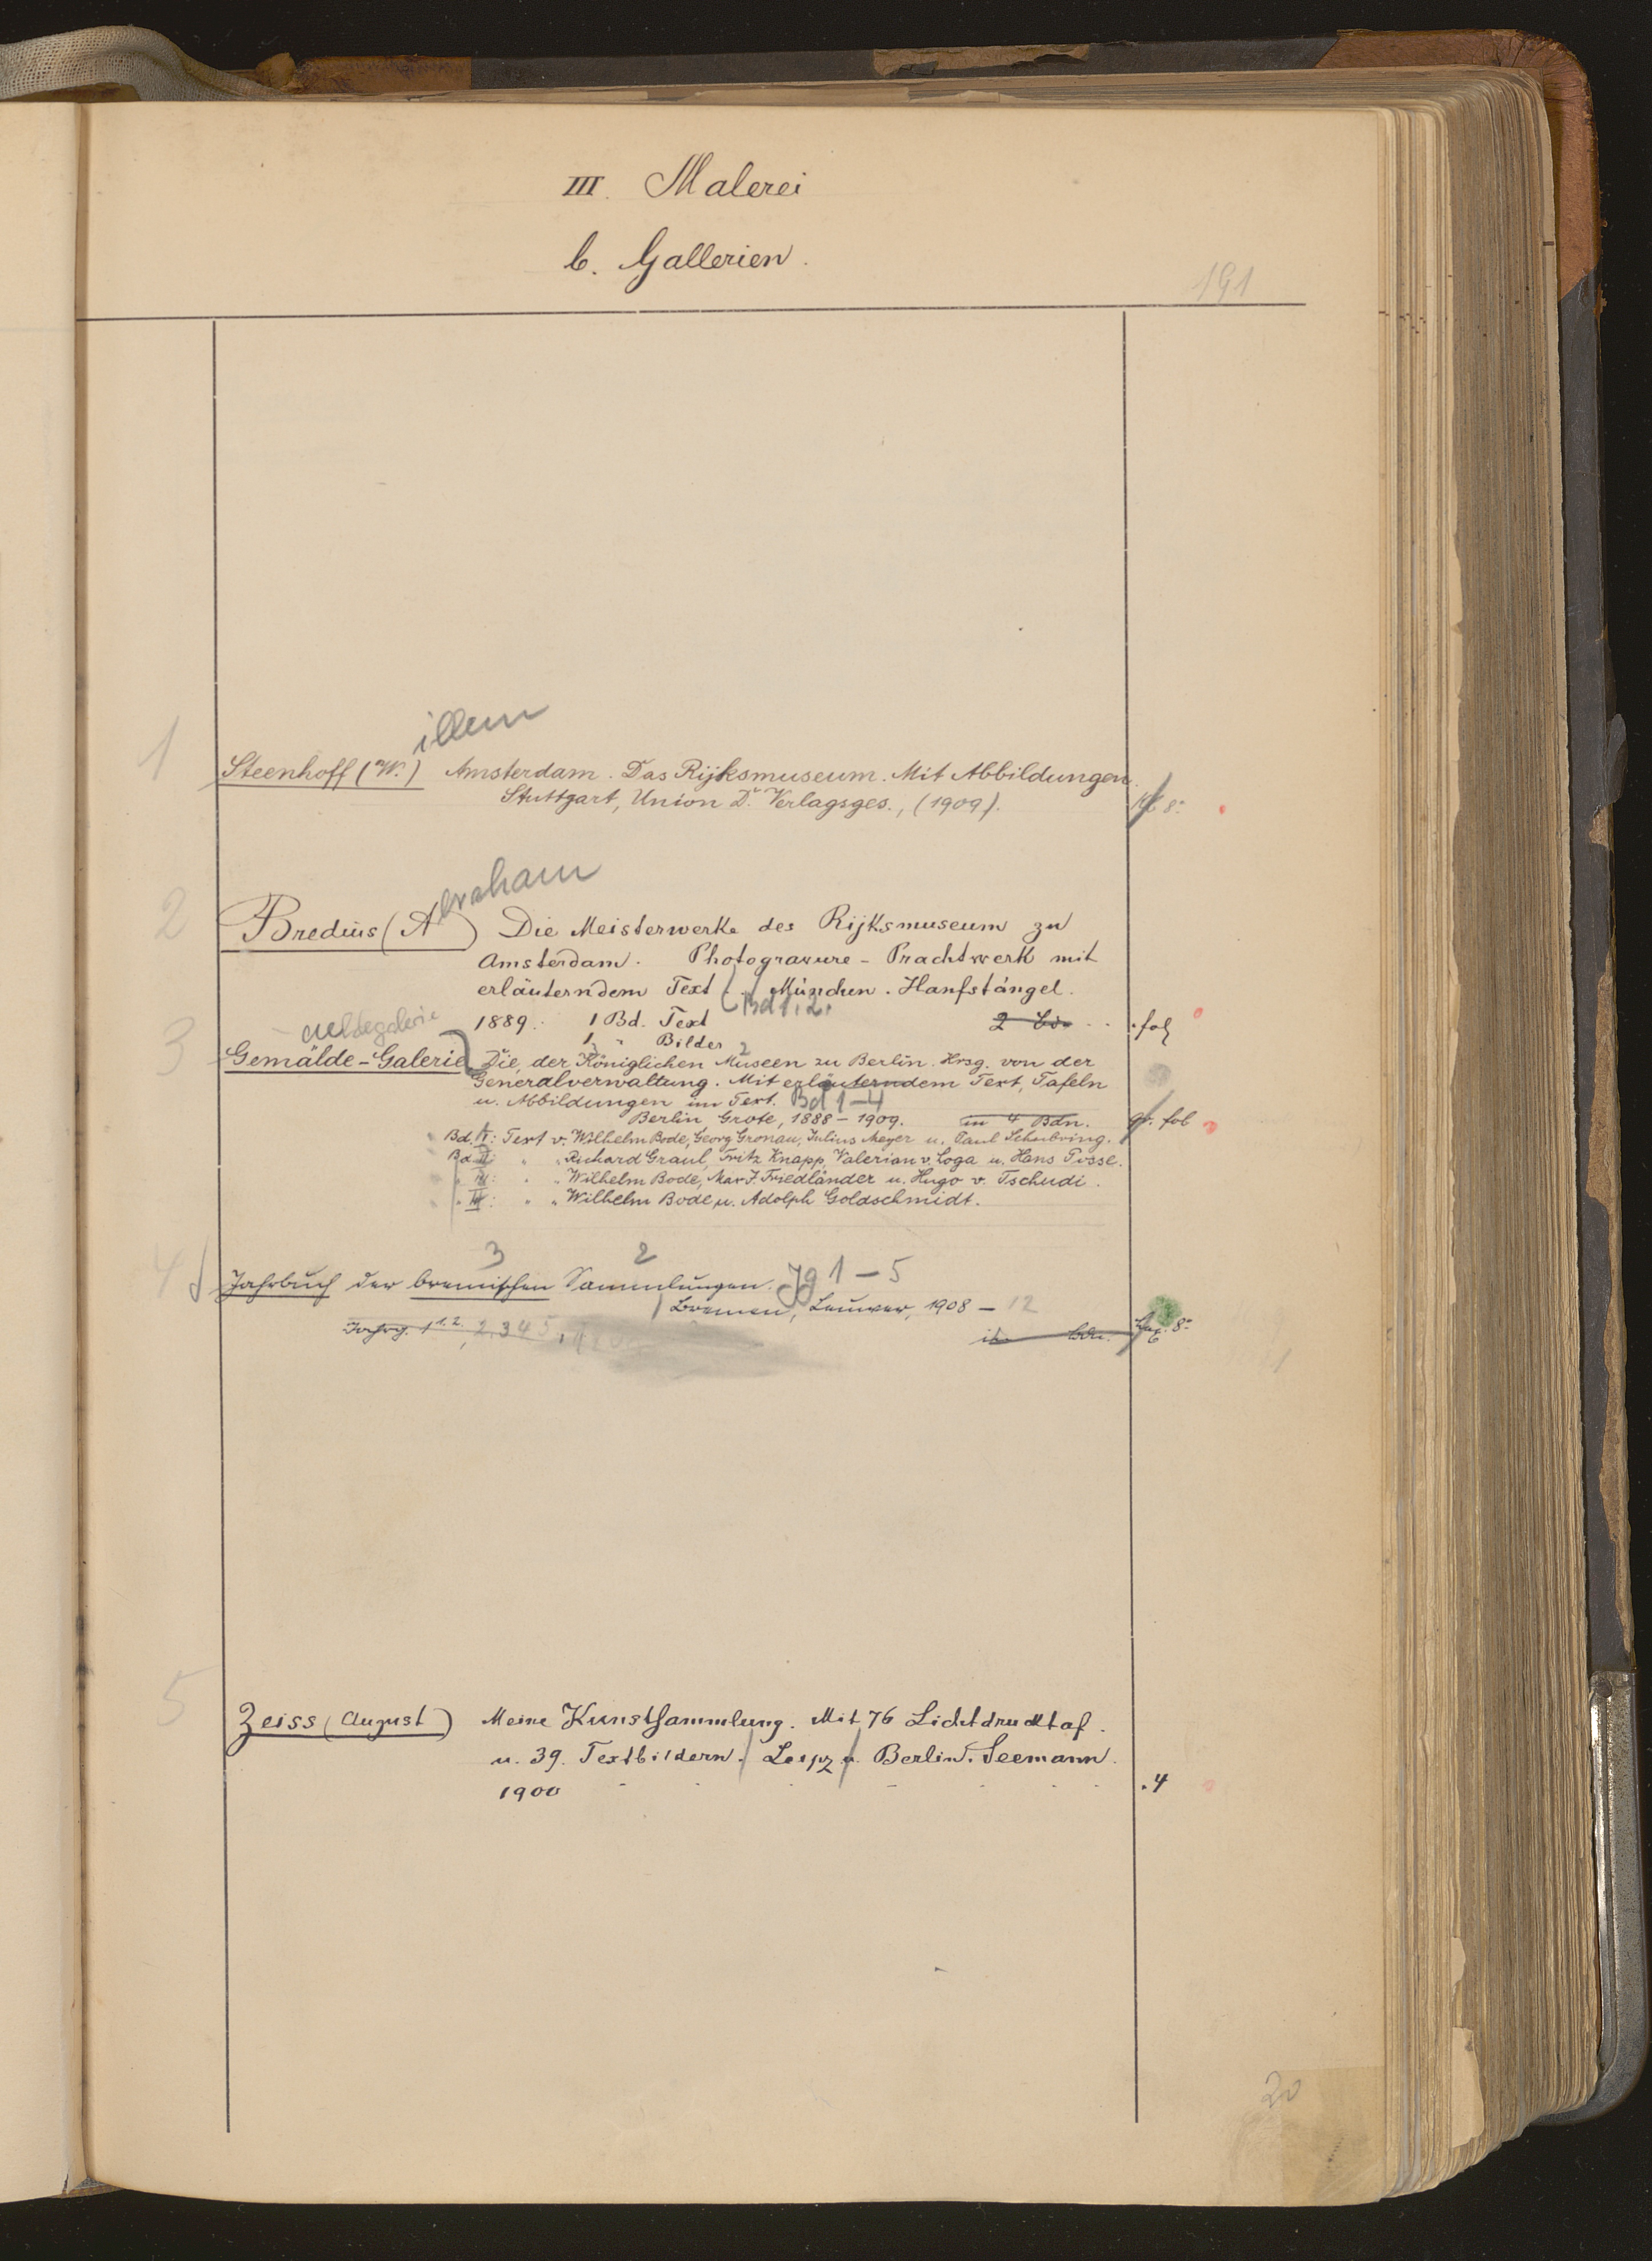 III. Malerei
b. Gallerien.
191
illem
1 Steenhoff (W.) Amsterdam. Das Rijksmuseum. Mit Abbildungen.
Stuttgart, Union D. Verlagsges., (1909). 8°
braham
2 Bredius (A) Die Meisterwerke des Rijksmuseum zu
Amsterdam. Photogravure-Prachtwerk mit
erläuterndem Text. München. Hanfstängel.
Bd 1.2.
1889. 1 Bd. Text 2 Bde .fol
äldegalerie
1 " Bilder
3 Gemälde-Galerie, Die, der Königlichen Museen zu Berlin. Hrsg. von der
Generalverwaltung. Mit erläuterndem Text, Tafeln
u. Abbildungen im Text. Bd 1-4
Berlin Grote, 1888-1909. in 4 Bdn. gr. fol
Bd. I: Text v. Wilhelm Bode, Georg Gronau, Julius Meyer u. Paul Schubring.
Bd. II: " " Richard Graul, Fritz Knapp, Valerian v. Loga u. Hans Posse.
" III: " " Wilhelm Bode, Max J. Friedländer u. Hugo v. Tschudi.
" IV: " " Wilhelm Bode, u. Adolph Goldschmidt.
3 2
4 Jahrbuch der bremischen Sammlungen. Jg 1-5
Bremen, Leuwer, 1908-12
Jahrg. 1 1.2., 2, 3 4 5, in Bdn. Lex. 8°
5 Zeiss (August) Meine Kunstsammlung. Mit 76 Lichtdrucktaf.
u. 39. Textbildern. Leipz u. Berlin. Seemann.
1900 .4
20